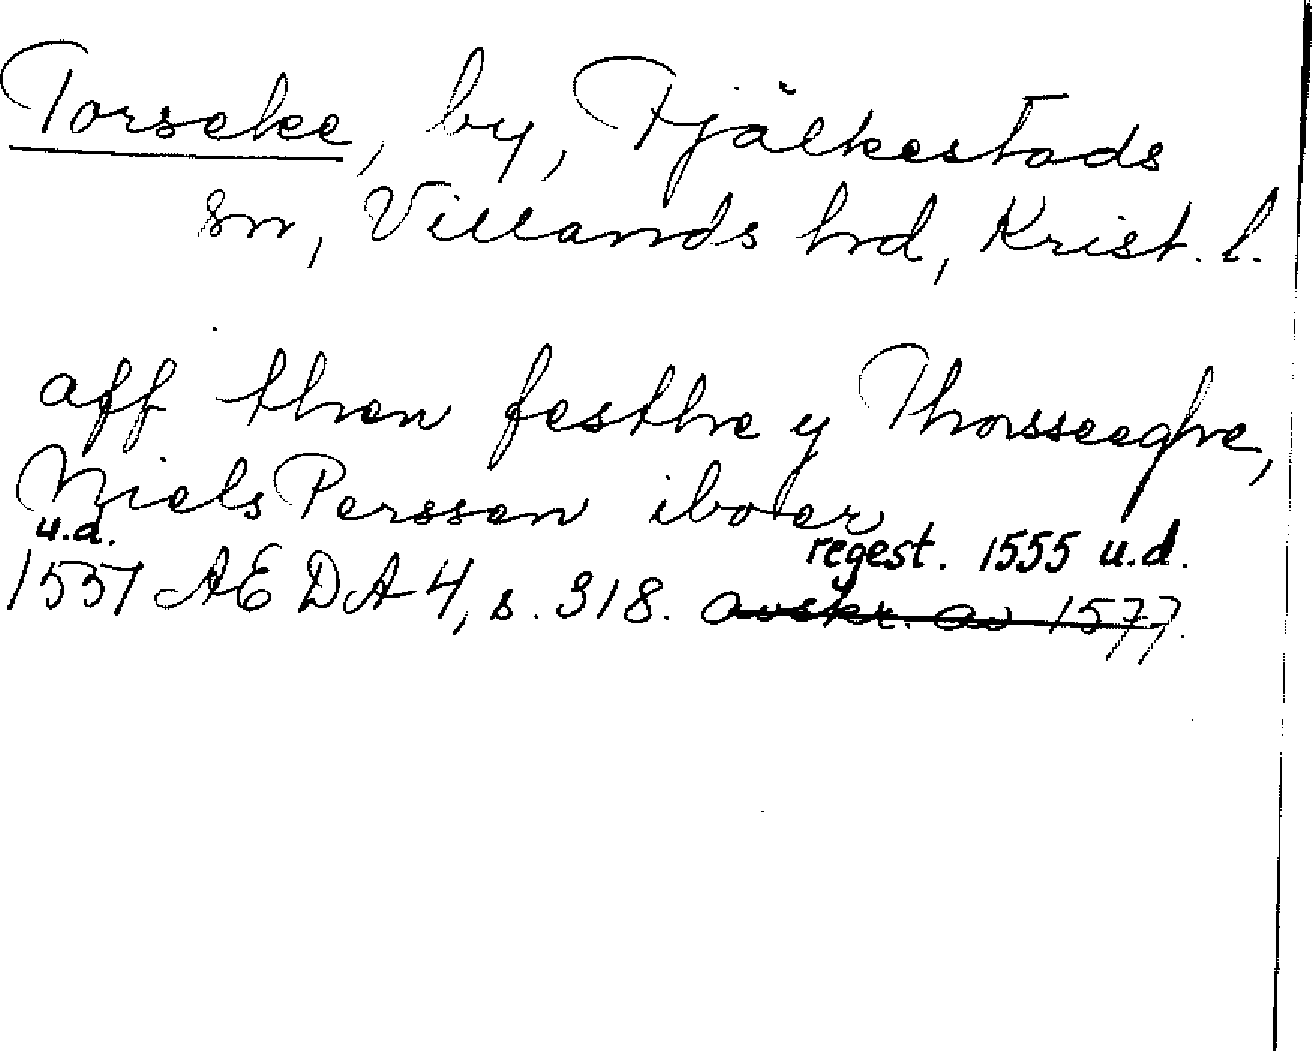 Torseke, by, Fjälkestads
sn, Villands hrd, Krist. l.
aff then festhe y Thorsseeghe,
Niels Perssen iboer
u.d. regest. 1555 u.d.
1537 AEDA 4, s. 318. avskr. av 1577.